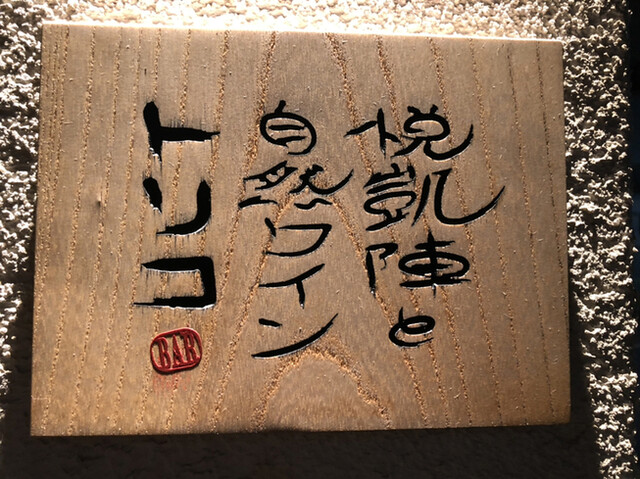 悦凱陣と
自然ワイン
BAR